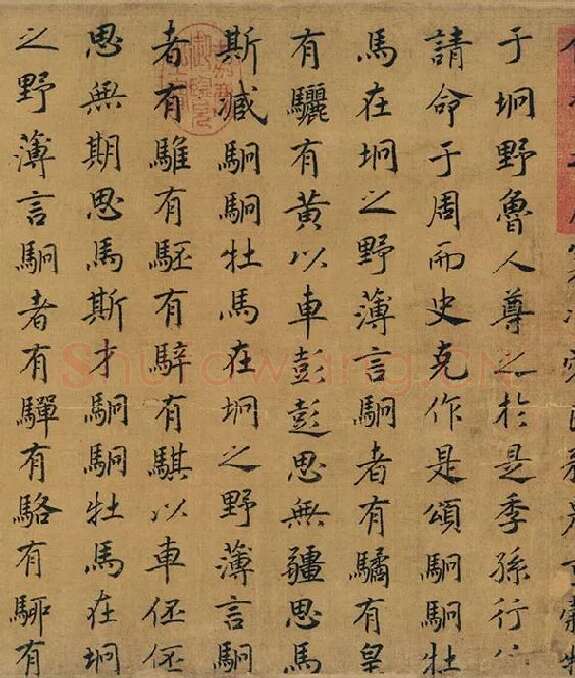 于坰野魯人尊之於是季孫行
請命于周而史克作是頌駉駉牡
馬在坰之野薄言駉者有驈有皇
有驪有黃以車彭彭思無疆思馬
斯臧駉駉牡馬在坰之野薄言駉
者有騅有駓有騂有騏以車伾伾
思無期思馬斯才駉駉牡馬在坰
之野薄言駉者有驒有駱有駵有
Shufawang.cn